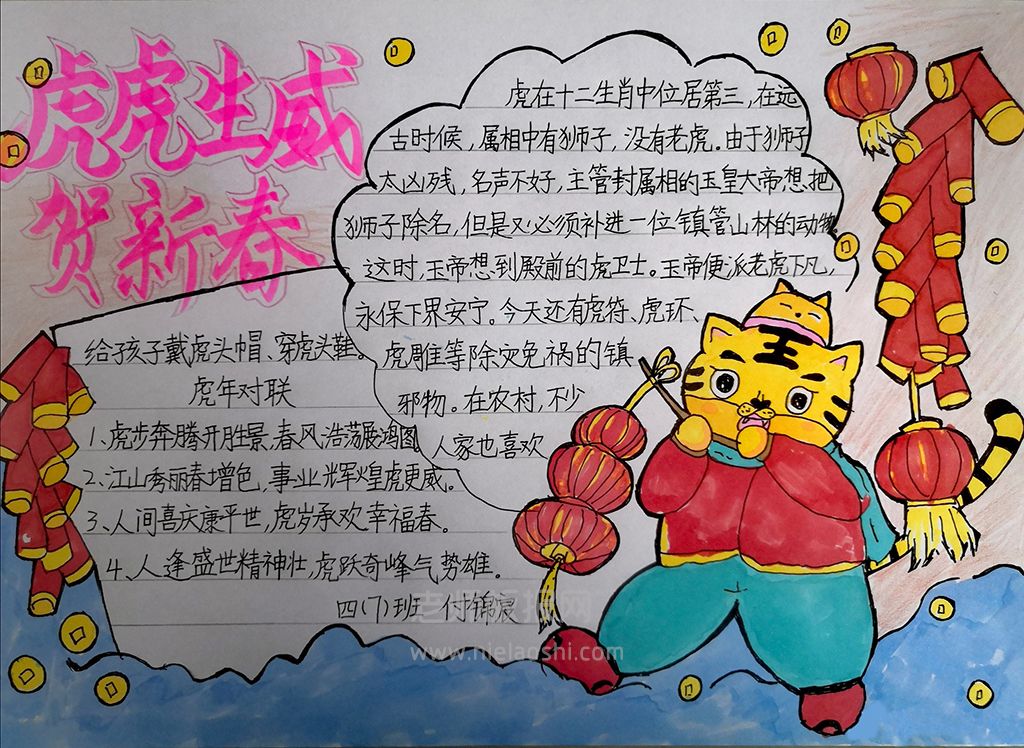 虎虎生威
贺新春
虎在十二生肖中位居第三,在远
古时候,属相中有狮子,没有老虎。由于狮子
太凶残,名声不好,主管封属相的玉皇大帝想把
狮子除名,但是又必须补进一位镇管山林的动物。
这时,玉帝想到殿前的虎卫士。玉帝便派老虎下凡,
永保下界安宁。今天还有虎符、虎环、
虎雕等除灾免祸的镇
邪物。在农村,不少
人家也喜欢
给孩子戴虎头帽、穿虎头鞋。
虎年对联
1、虎步奔腾开胜景,春风浩荡展鸿图
2、江山秀丽春增色,事业辉煌虎更威。
3、人间喜庆康平世,虎岁承欢幸福春。
4、人逢盛世精神壮,虎跃奇峰气势雄。
四(7)班 付锦宸
王
www.nielaoshi.com